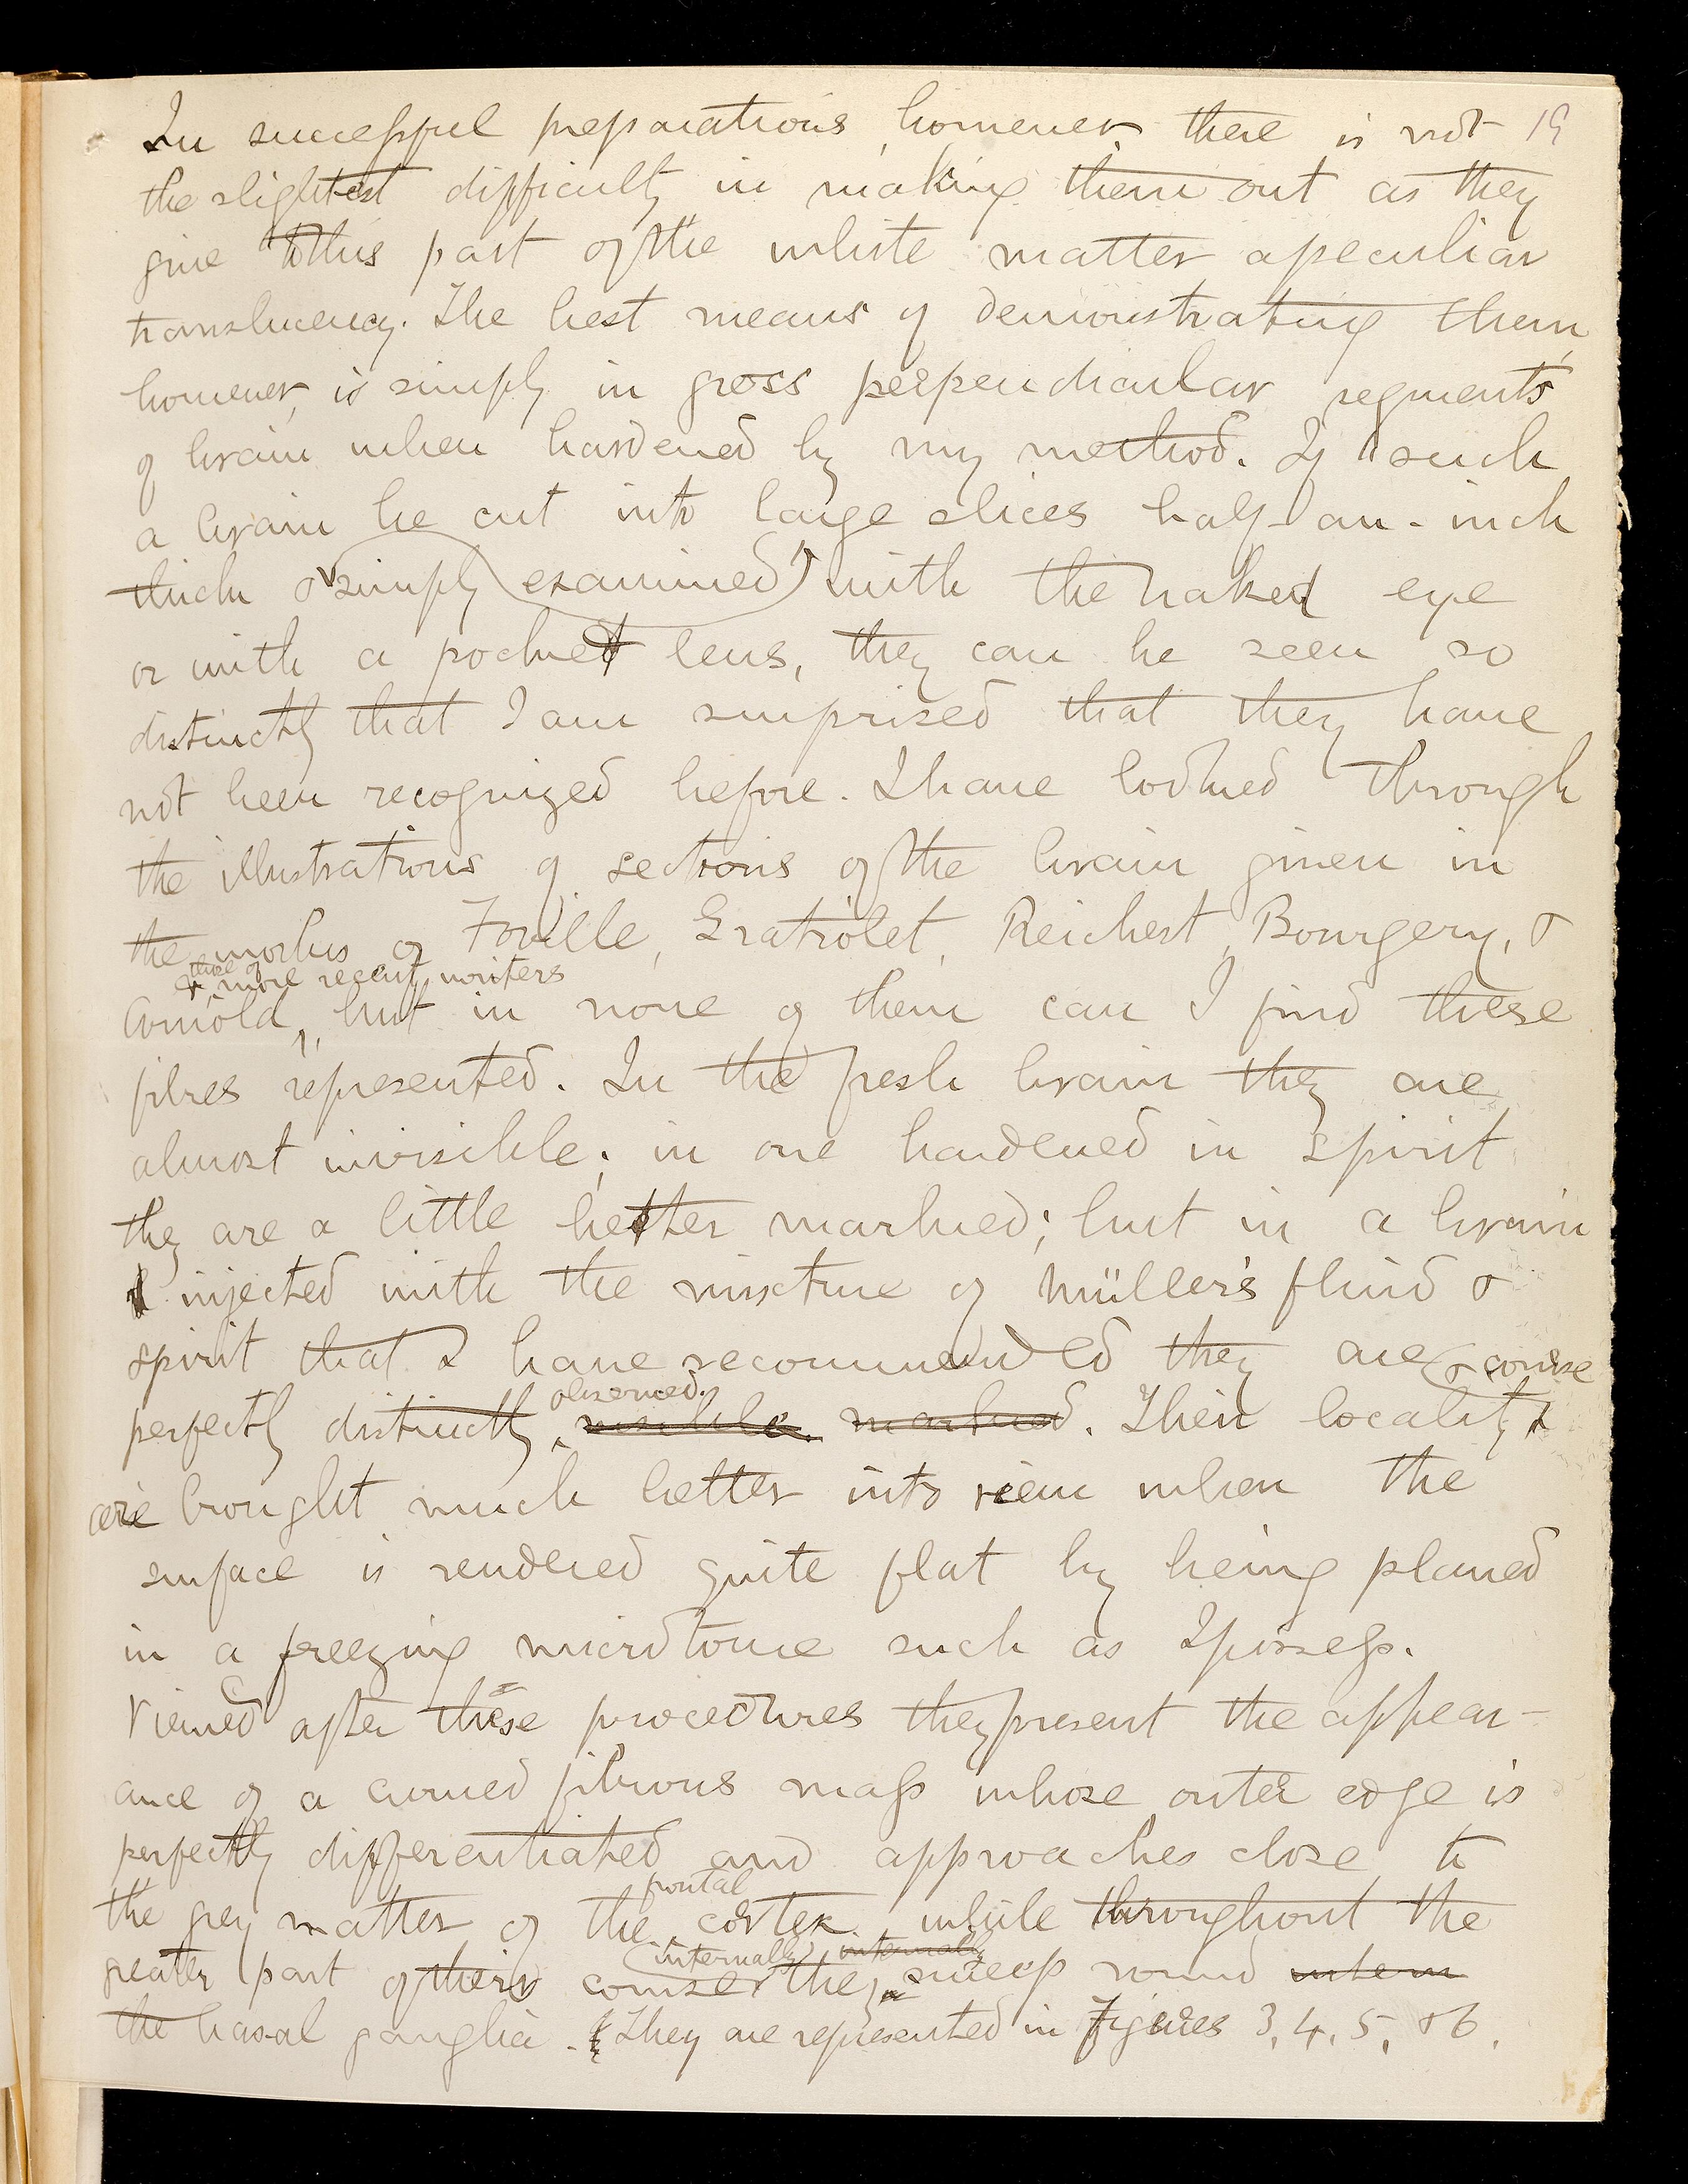 In successful preparations, however there is not 19
the slightest difficulty in making them out as they
give to this part of the white matter a peculiar
translucency. The best means of demonstrating them,
however, is simply in gross perpendicular segments
of brain when hardened by my method. If such
a brain be cut into large slices half-an-inch
thick & simply examined with the naked eye
or with a pocket lens, they can be seen so
distinctly that I am surprised that they have
not been recognized before. I have looked through
the illustrations of sections of the brain given in
the works of Foville, Gratiolet, Reichert, Bourgery, &
& those of more recent writers
Arnold, but in none of them can I find these
fibres represented. In the fresh brain they are
almost invisible; in one hardened in spirit
they are a little better marked; but in a brain
injected with the mixture of Müller's fluid &
spirit that I have recommended they are & course
observed.
perfectly distinctly visible marked. Their locality &
are brought much better into view when the
surface is rendered quite flat by being planed
in a freezing microtome such as I possess.
Viewed after these procedures they present the appear-
ance of a curved fibrous mass whose outer edge is
perfectly differentiated and approaches close to
frontal
the grey matter of the cortex, while throughout the
internally internally
greater part of their course they sweep round intern
the basal ganglia. They are represented in Figures 3, 4, 5, & 6.